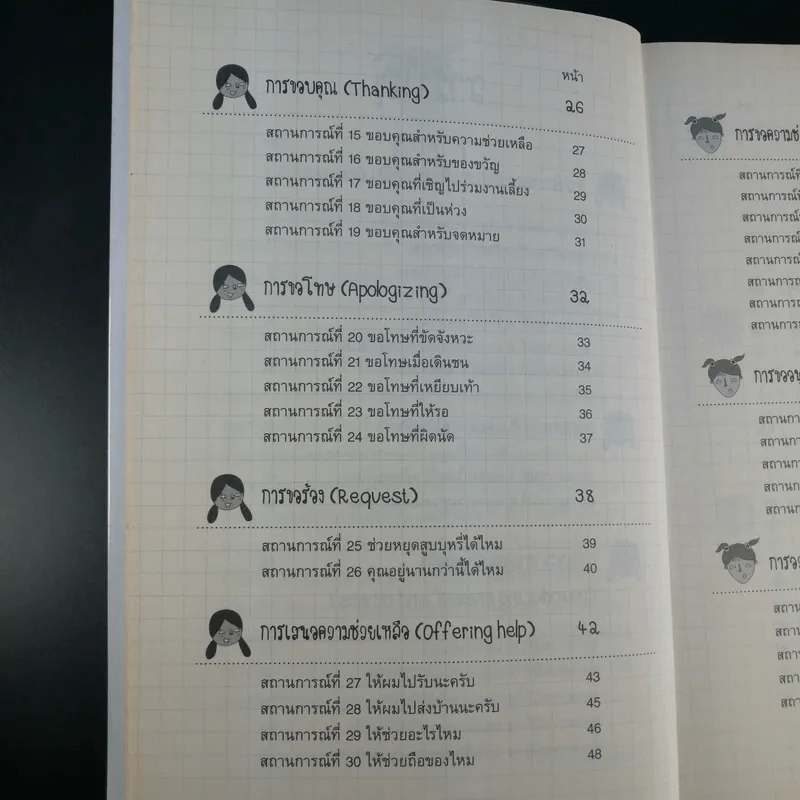 หน้า
การขอบคุณ (Thanking) 26
สถานการณ์ที่ 15 ขอบคุณสำหรับความช่วยเหลือ 27
สถานการณ์ที่ 16 ขอบคุณสำหรับของขวัญ 28
สถานการณ์ที่ 17 ขอบคุณที่เชิญไปร่วมงานเลี้ยง 29
สถานการณ์ที่ 18 ขอบคุณที่เป็นห่วง 30
สถานการณ์ที่ 19 ขอบคุณสำหรับจดหมาย 31
การขอโทษ (Apologizing) 32
สถานการณ์ที่ 20 ขอโทษที่ขัดจังหวะ 33
สถานการณ์ที่ 21 ขอโทษเมื่อเดินชน 34
สถานการณ์ที่ 22 ขอโทษที่เหยียบเท้า 35
สถานการณ์ที่ 23 ขอโทษที่ให้รอ 36
สถานการณ์ที่ 24 ขอโทษที่ผิดนัด 37
การขอร้อง (Request) 38
สถานการณ์ที่ 25 ช่วยหยุดสูบบุหรี่ได้ไหม 39
สถานการณ์ที่ 26 คุณอยู่นานกว่านี้ได้ไหม 40
การเสนอความช่วยเหลือ (Offering help) 42
สถานการณ์ที่ 27 ให้ผมไปรับนะครับ 43
สถานการณ์ที่ 28 ให้ผมไปส่งบ้านนะครับ 45
สถานการณ์ที่ 29 ให้ช่วยอะไรไหม 46
สถานการณ์ที่ 30 ให้ช่วยถือของไหม 48